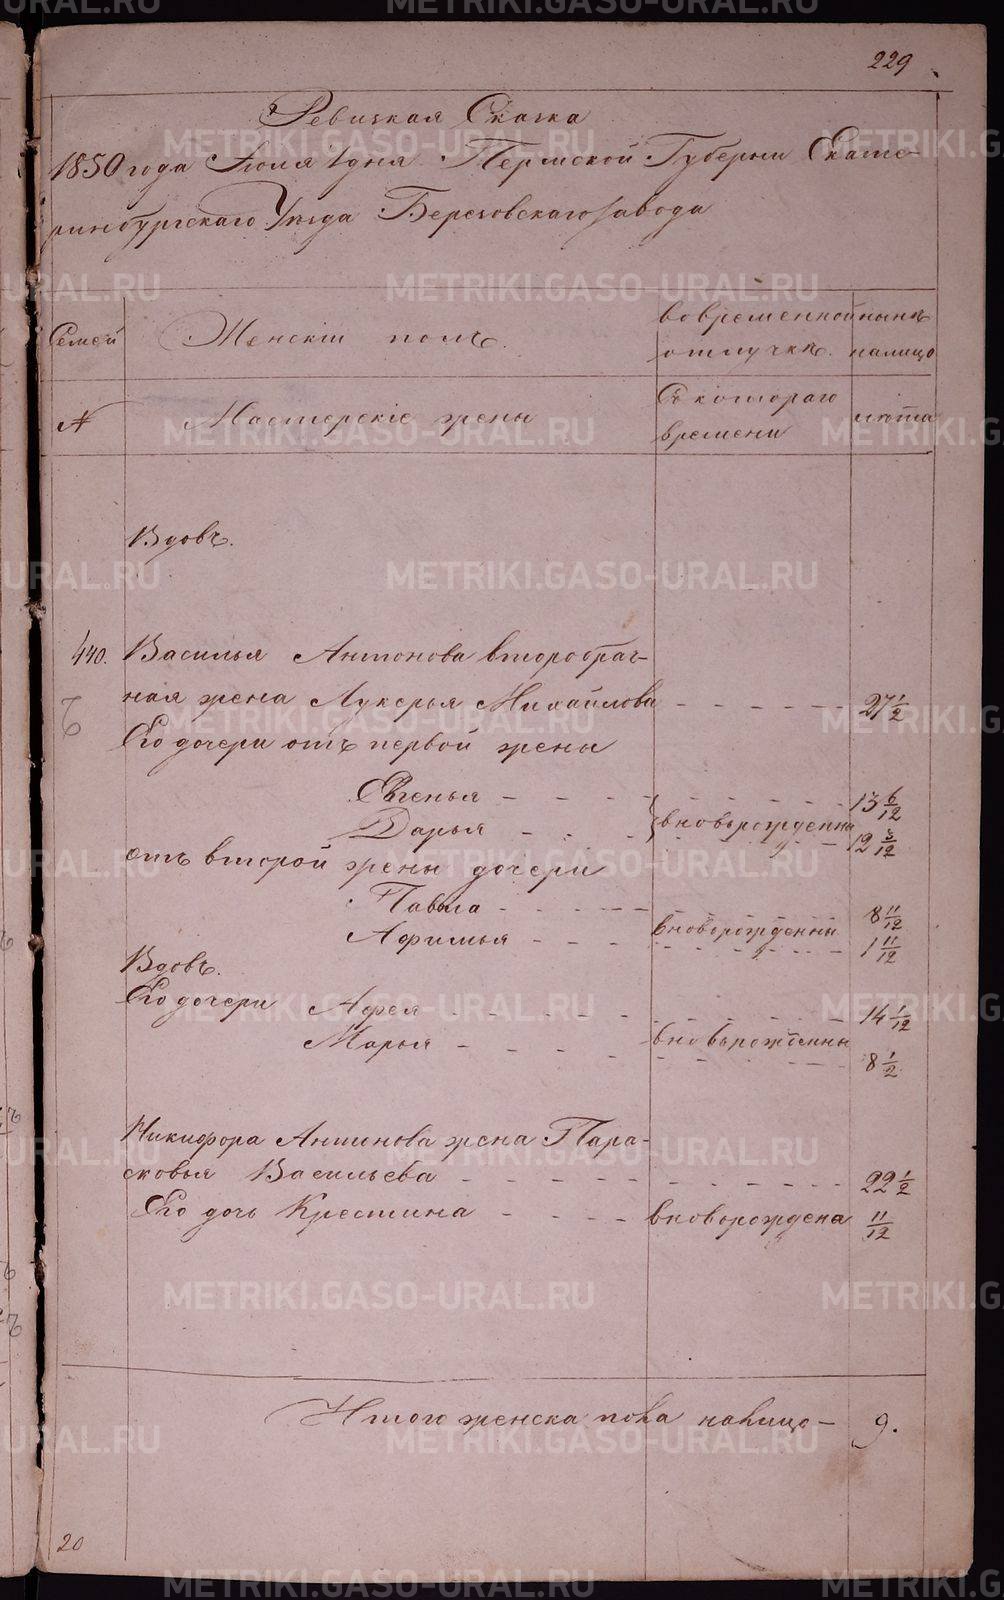 229
Ревизкая Сказка
1850 года Іюля 1 дня Пермской Губерніи Екате-
ринбургскаго Уѣзда Березовскаго завода
Семей Женскій полъ. во временной отлучкѣ. нынѣ налицо
№ Мастерскіе жены Съ котораго времени лѣта
Вдовъ.
440. Василья Антонова второбрач-
ная жена Лукерья Михайлова 27 1/2
Его дочери отъ первой жены
Евгенья 13 6/12
Дарья вновьрожденны 12
отъ второй жены дочери
Павла 8 11/12
Афимья вноворожденны 1 11/12
Вдовъ.
Его дочери Афея 14 1/12
Марья вновьрожденны 8 1/2
Никифора Антонова жена Пара-
сковья Васильева 22 1/2
Его дочь Крестина вноворождена 11/12
Итого женска пола налицо 9.
20
METRIKI.GASO-URAL.RU